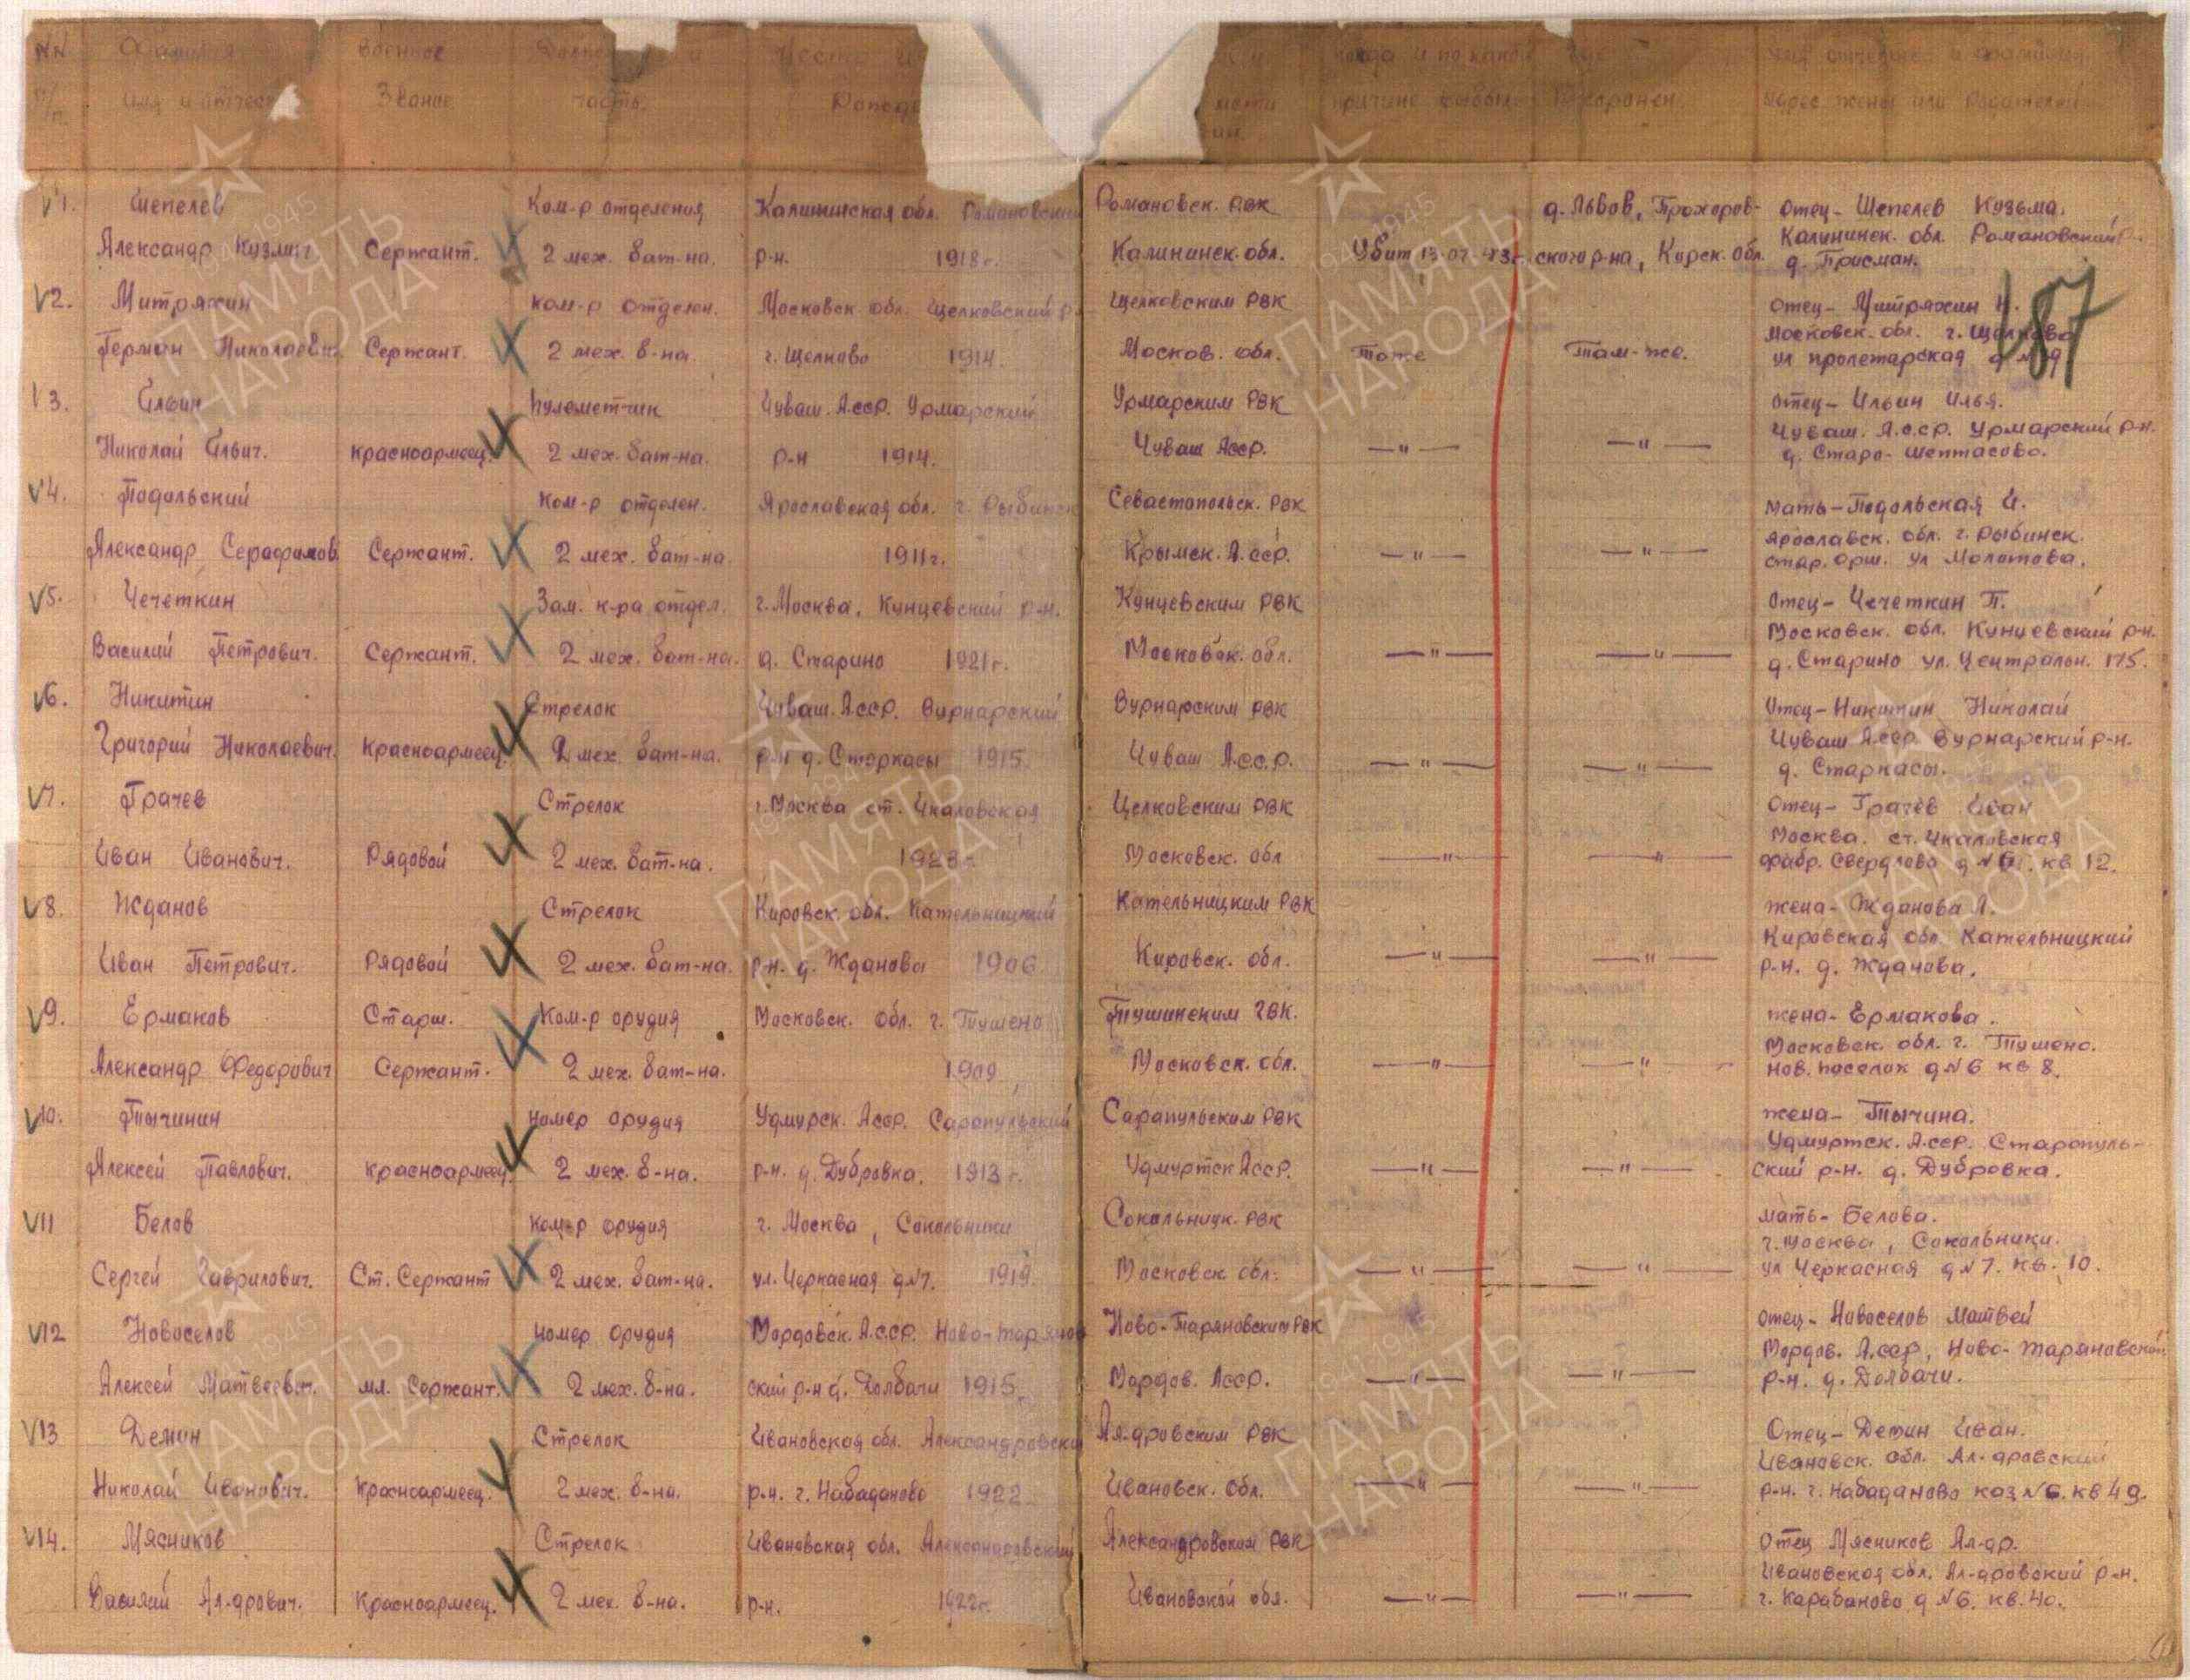 NN Фамилия Военное
п/п имя и отчест Звание часть.
когда и по как имя отчество и фамилия
причине выбыл Похоронен. Адрес жены или Родителей
V1. Шепелев Ком-р отделения Калининская обл. Романовский Романовск. РВК д. Львов, Прохоров- Отец- Шепелев Кузьма.
Александр Кузмич Сержант. 2 мех. бат-на. р-н. 1918г. Калининск. обл. Убит 13.07.43г. ского р-на, Курск. обл. Калининск. обл. Романовский р-
д. Присман.
V2. Митряхин ком-р отделен. Московск. обл. Щелковский р- Щелковским РВК отец- Митряхин Н.
Герман Николаевич Сержант. 2 мех. б-на. г. Щелково 1914. Москов. обл. Тоже Там-же. Московск. обл. г. Щелково
ул пролетарская д N 19
87
V3. Ильин пулеметчик Чуваш. А.ССР. Урмарский Урмарским РВК отец- Ильин Илья.
Николай Ильич. красноармеец. 2 мех. бат-на. р-н 1914. Чуваш АССР. —"— —"— Чуваш. А.с.с.р. Урмарский р-н.
д. Старо-шептасово.
V4. Подольский ком-р отделен. Ярославская обл. г. Рыбинск Севастопольск. РВК Мать-Подольская И.
Александр Серафимов. Сержант. 2 мех. бат-на. 1911г. Крымск. А.ССР. —"— —"— Ярославск. обл. г. Рыбинск.
стар. ерш. ул Молотова.
V5. Чечеткин Зам. к-ра отдел. г. Москва, Кунцевский р-н. Кунцевским РВК Отец- Чечеткин П.
Василий Петрович. Сержант. 2 мех. бат-на. д. Старино 1921г. Московск. обл. —"— —"— Московск. обл. Кунцевский р-н.
д. Старино ул. Централон. 175.
V6. Никитин Стрелок Чуваш. АССР. Вурнарский Вурнарским РВК Отец-Никитин Николай
Григорий Николаевич. Красноармеец. 2 мех. бат-на. р-н д. Старкасы 1915. Чуваш А.с.с.р. —"— —"— Чуваш АССР Вурнарский р-н.
д. Старкасы.
V7. Грачев Стрелок г. Москва ст. Чкаловская Щелковским РВК отец- Грачёв Иван
Иван Иванович. Рядовой 2 мех. бат-на. 1923г. Московск. обл —"— —"— Москва. ст. Чкаловская
фабр. Свердлова д N 61. кв 12.
V8. Жданов Стрелок Кировск. обл. Кательницкий Кательницким РВК жена- Жданова А.
Иван Петрович. Рядовой 2 мех. бат-на. р-н. д. Жданова 1906 Кировск. обл. —"— —"— Кировская обл Кательницкий
р-н. д. Жданова.
V9. Ермаков Старш. Ком-р орудия Московск. обл. г. Тушено Тушинским ГВК. жена- Ермакова.
Александр Федорович Сержант. 2 мех. бат-на. 1909 Московск. обл. —"— —"— Московск. обл. г. Тушено.
нов. поселок д N 6 кв 8.
V10. Тычинин номер орудия Удмурск. АССР. Сарапульский Сарапульским РВК жена- Тычина.
Алексей Павлович. красноармеец. 2 мех. б-на. р-н. д. Дубровка. 1913г. Удмуртск АССР. —"— —"— Удмуртск. А.ССР. Старопуль-
ский р-н. д. Дубровка.
V11 Белов ком-р орудия г. Москва, Сокольники Сокольницк. РВК мать- Белова.
Сергей Гаврилович. Ст. Сержант 2 мех. бат-на. ул. Черкасная д N 7. 1919. Московск обл. —"— —"— г. Москва, Сокольники.
ул Черкасная д N 7. кв. 10.
V12 Новоселов номер орудия Мордовск. А.ССР. Ново-таряно Ново-Таряновским РВК отец- Новоселов Матвей
Алексей Матвеевич. мл. Сержант. 2 мех. б-на. ский р-н д. Долбачи 1915. Мордов. АССР. —"— —"— Мордов. А.ССР, Ново-таряновский
р-н. д. Долбачи.
V13 Демин Стрелок Ивановская обл. Александровски Ал-дровским РВК Отец- Демин Иван.
Николай Иванович. Красноармеец. 2 мех. б-на. р-н. г. Набаданово 1922 Ивановск. обл. —"— —"— Ивановск. обл. Ал-дровский
р-н. г. Набаданово каз N 6. кв 49.
V14. Мясников Стрелок Ивановская обл. Александровский Александровским РВК отец Мясников Ал-др.
Василий Ал-дрович. Красноармеец. 2 мех. б-на. р-н. 1922г. Ивановской обл. —"— —"— Ивановская обл. Ал-дровский р-н.
г. Карабаново д N 6. кв. 40.
ПАМЯТЬ НАРОДА
1941 1945